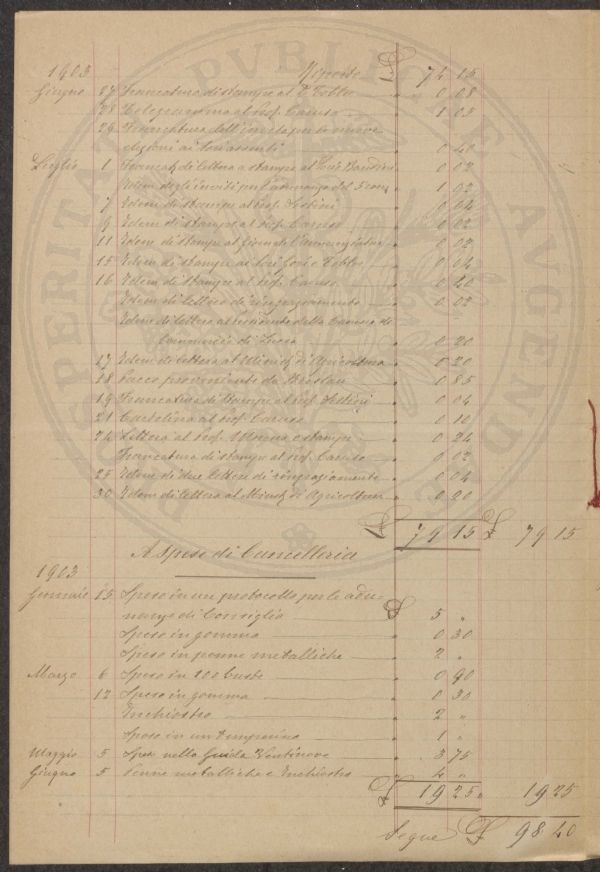 1903 Riporto £ 74 15
Giugno 27 Francatura di stampe al P. Tobler " 0 08
28 Telegramma al Prof. Caruso " 1 05
29 Francatura dell'invito per le nuove
elezioni ai Soci assenti " 0 40
Luglio 1 Francat. di lettera e stampe al Bandini " 0 02
Idem degli inviti per l'adunanza del 5 corr. " 1 92
7 Idem di stampe al Prof. Sestini " 0 04
9 Idem di stampe al Prof. Caruso " 0 02
11 Idem di stampe al " 0 02
15 Idem di stampe ai Soci e Tobler " 0 04
16 Idem di stampe al Prof. Caruso " 0 20
Idem di lettera di ringraziamento " 0 02
Idem di lettera al Presidente della Camera di
Commercio di Lucca " 0 20
17 Idem di lettera al Minist. di Agricoltura " 0 20
18 Pacco proveniente da Breslau " 0 85
19 Francatura di stampe al Prof. Sestini " 0 04
21 Cartolina al Prof. Caruso " 0 10
24 Lettera al Prof. e stampe " 0 24
Francatura di stampe al Prof. Caruso " 0 02
25 Idem di due lettere di ringraziamento " 0 04
30 Idem di lettera al Minist. di Agricoltura " 0 20
£ 79 15 £ 79 15
A spese di Cancelleria
1903
Gennaio 15 Spese in un protocollo per le adu-
nanze di Consiglio £ 5 "
Spese in gomma " 0 30
Spese in penne metalliche " 2 "
Marzo 6 Spese in 100 buste " 0 90
12 Spese in gomma " 0 30
Inchiostro " 2 "
Spese in un temperino " 1 "
Maggio 5 Spesa nella Guida Ventinove " 3 75
Giugno 5 Penne metalliche e Inchiostro " 4 "
£ 19 25 " 19 25
Segue £ 98 40
PROSPERITATI PUBLICAE AUGENDAE